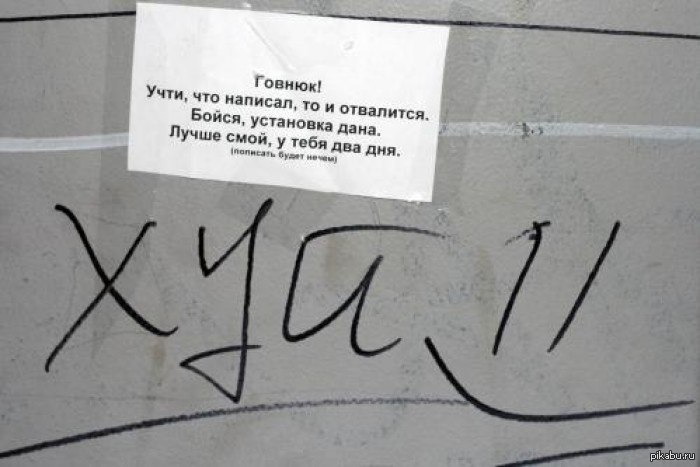 Говнюк!
Учти, что написал, то и отвалится.
Бойся, установка дана.
Лучше смой, у тебя два дня.
(пописать будет нечем)
хуй !!
pikabu.ru